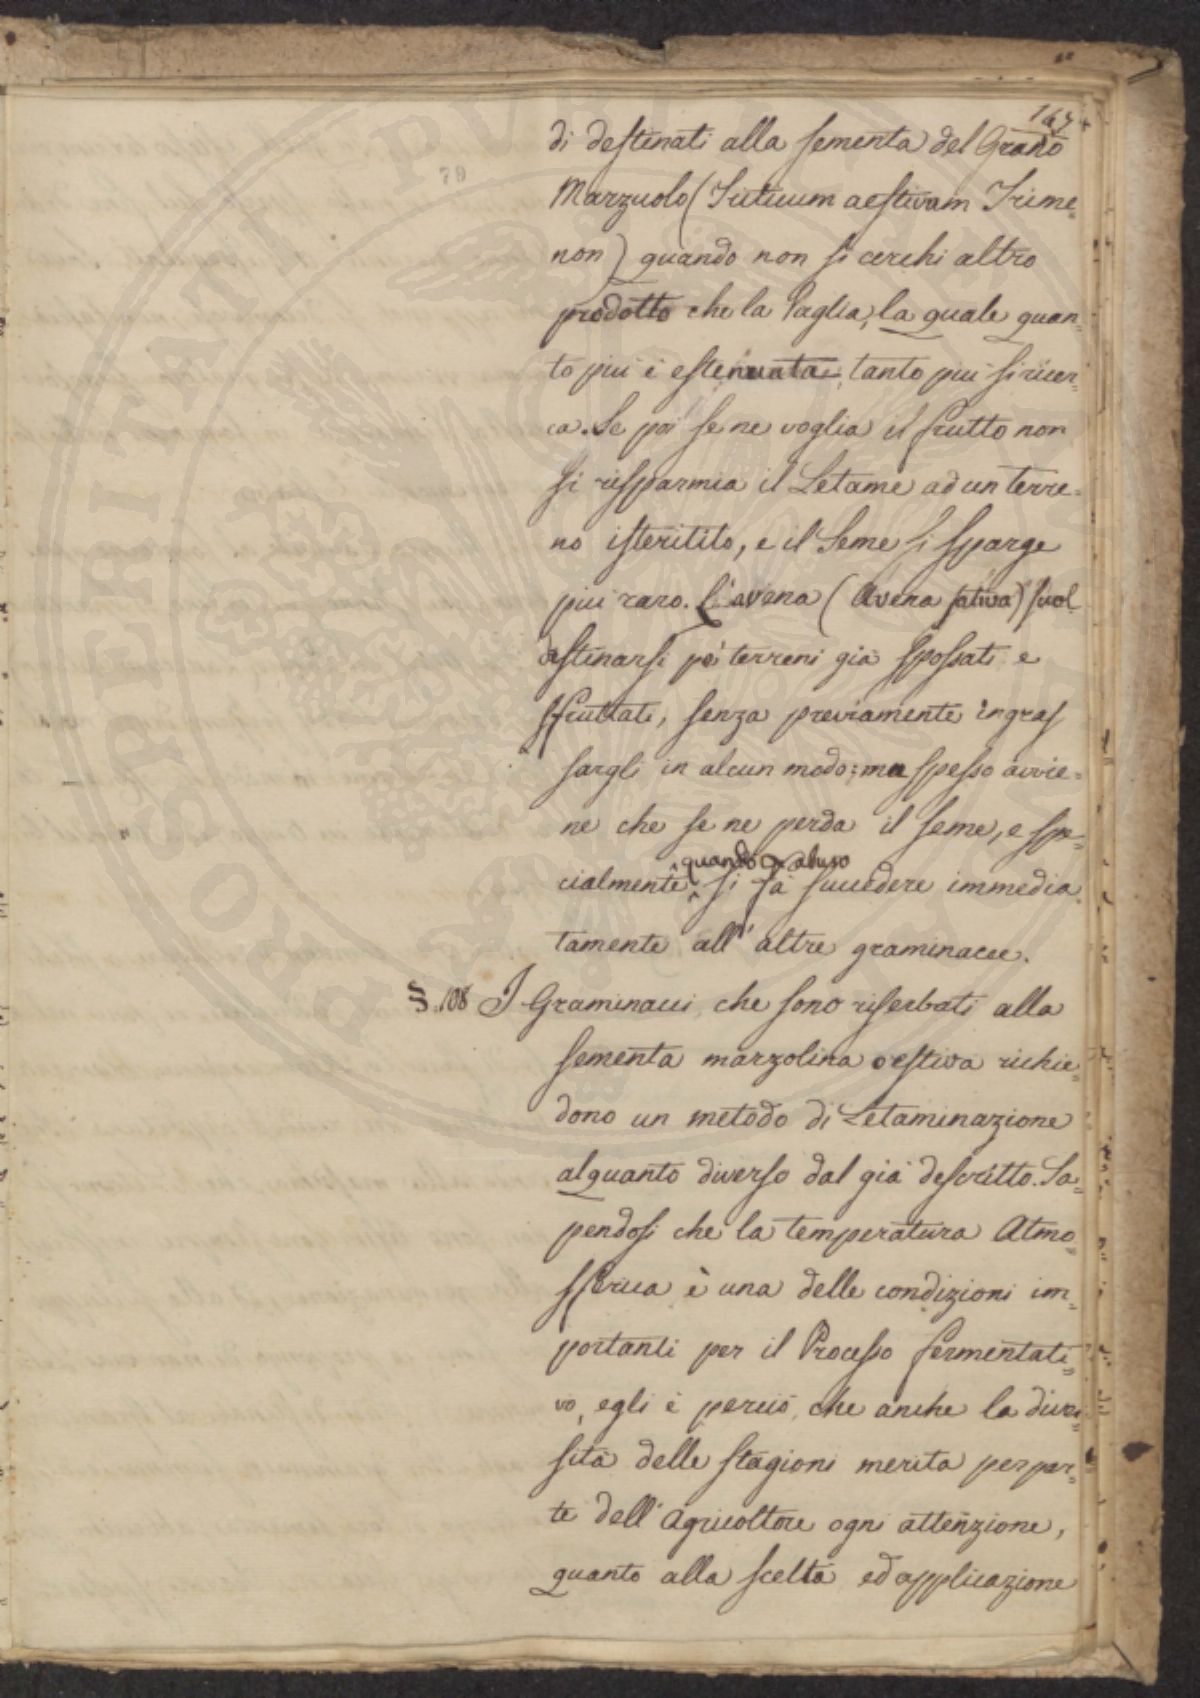 167
79
di destinati alla sementa del Grano
Marzuolo (Triticum aestivam Trime-
non) quando non si cerchi altro
prodotto che la Paglia, la quale quan-
to piu è estenuata, tanto piu si ricer-
ca. Se poi se ne voglia il frutto non
si risparmia il Letame ad un terre-
no isteritito, e il Seme si sparge
piu raro. L'avena (Avena sativa) suol
destinarsi pei terreni già spossati e
sfruttati, senza previamente ingras
sargli in alcun modo; ma spesso avvie-
ne che se ne perda il seme, e spe-
quando per abuso
cialmente si fà succedere immedia-
tamente all'altre graminacee.
§. 108 I Graminacei, che sono riserbati alla
sementa marzolina o estiva richie-
dono un metodo di Letaminazione
alquanto diverso dal già descritto. Sa-
pendosi che la temperatura Atmo-
sferica è una delle condizioni im-
portanti per il Processo fermentati-
vo, egli è perciò, che anche la diver-
sità delle stagioni merita per par-
te dell'Agricoltore ogni attenzione,
quanto alla scelta ed applicazione
PROSPERITATI PUBLICAE